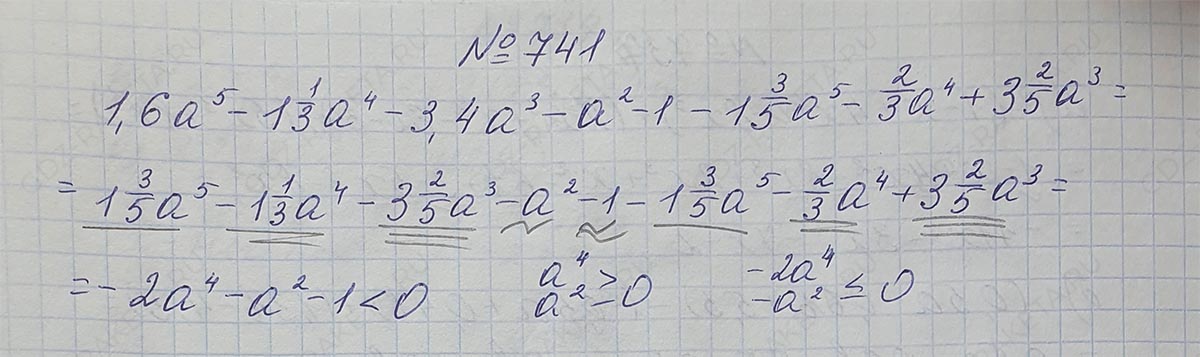 №741
1,6a⁵ - 1 1/3 a⁴ - 3,4a³ - a² - 1 - 1 3/5 a⁵ - 2/3 a⁴ + 3 2/5 a³ =
= 1 3/5 a⁵ - 1 1/3 a⁴ - 3 2/5 a³ - a² - 1 - 1 3/5 a⁵ - 2/3 a⁴ + 3 2/5 a³ =
= - 2a⁴ - a² - 1 < 0 a⁴ a² ≥ 0 -2a⁴ -a² ≤ 0